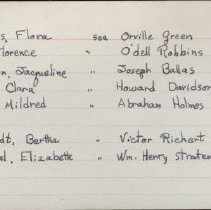 s, Flora see Orville Green
lorence " O'dell Robbins
n, Jacqueline " Joseph Ballas
Clara " Howard Davidson
Mildred " Abraham Holmes
dt, Bertha " Victor Richert
el, Elizabeth " Wm. Henry Straten